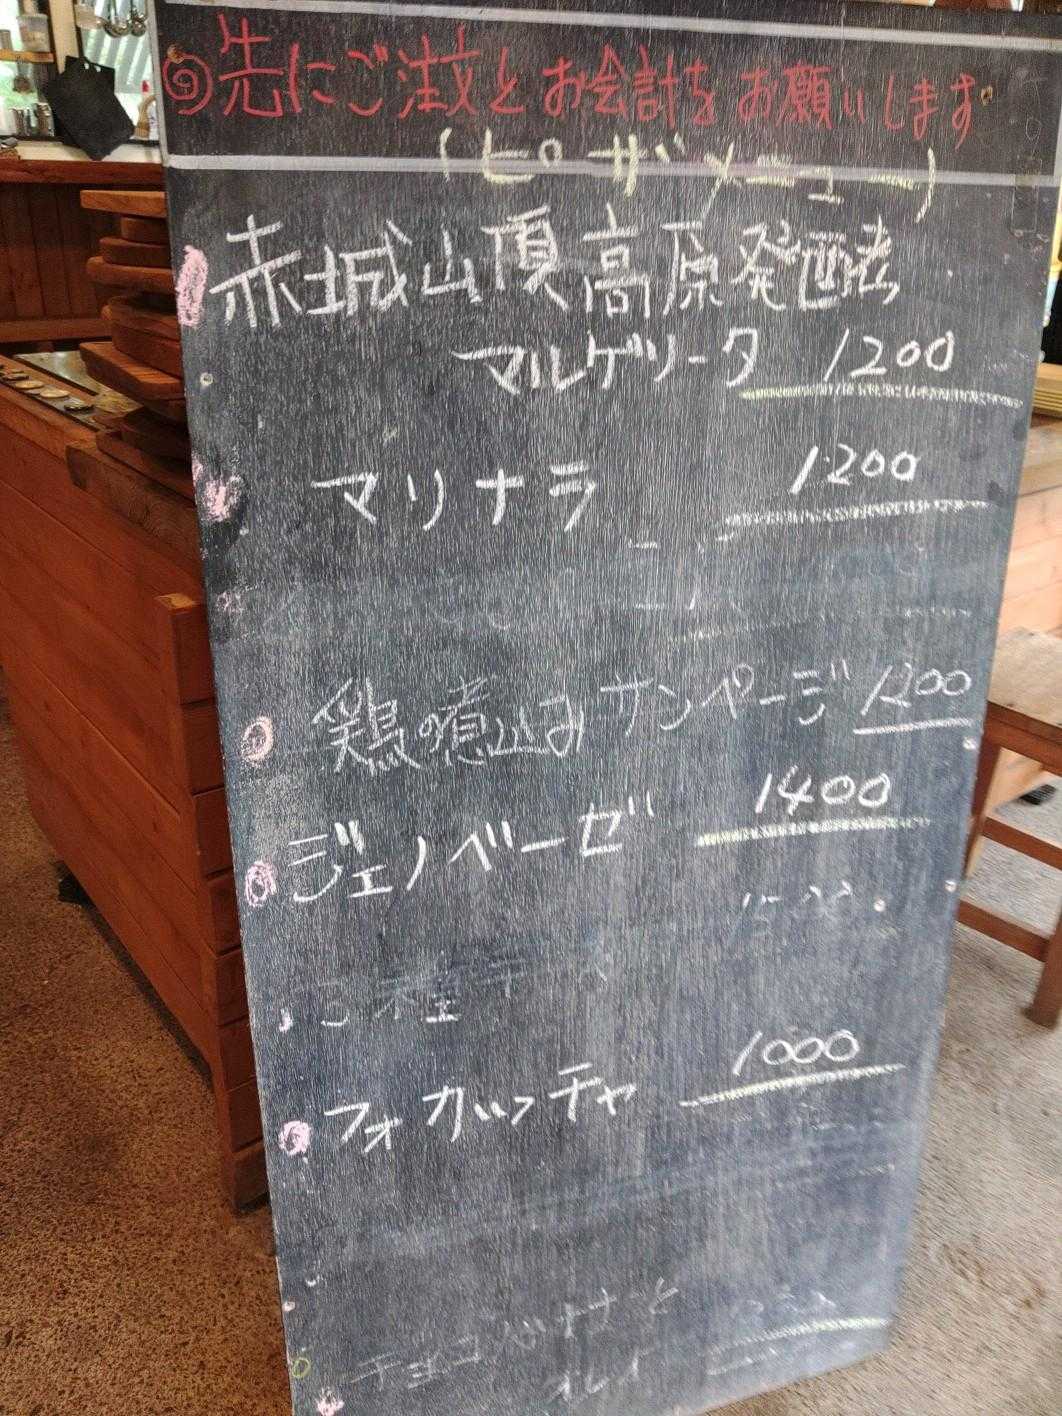 ◎先にご注文とお会計をお願いします
(ピザメニュー)
赤城山頂高原発酵
マルゲリータ 1200
マリナラ 1200
鶏の煮込みサンページ 1200
ジェノベーゼ 1400
3種チーズ
フォカッチャ 1000
チョコバナナと